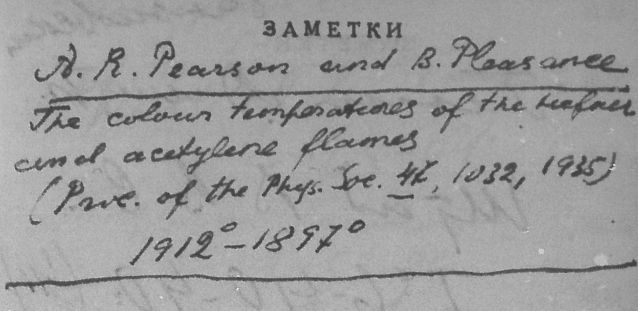 ЗАМЕТКИ
A. R. Pearson and B. Pleasance
The colour temperatures of the Hefner
and acetylene flames
(Proc. of the Phys. Soc. 47, 1032, 1935)
1912° – 1897°